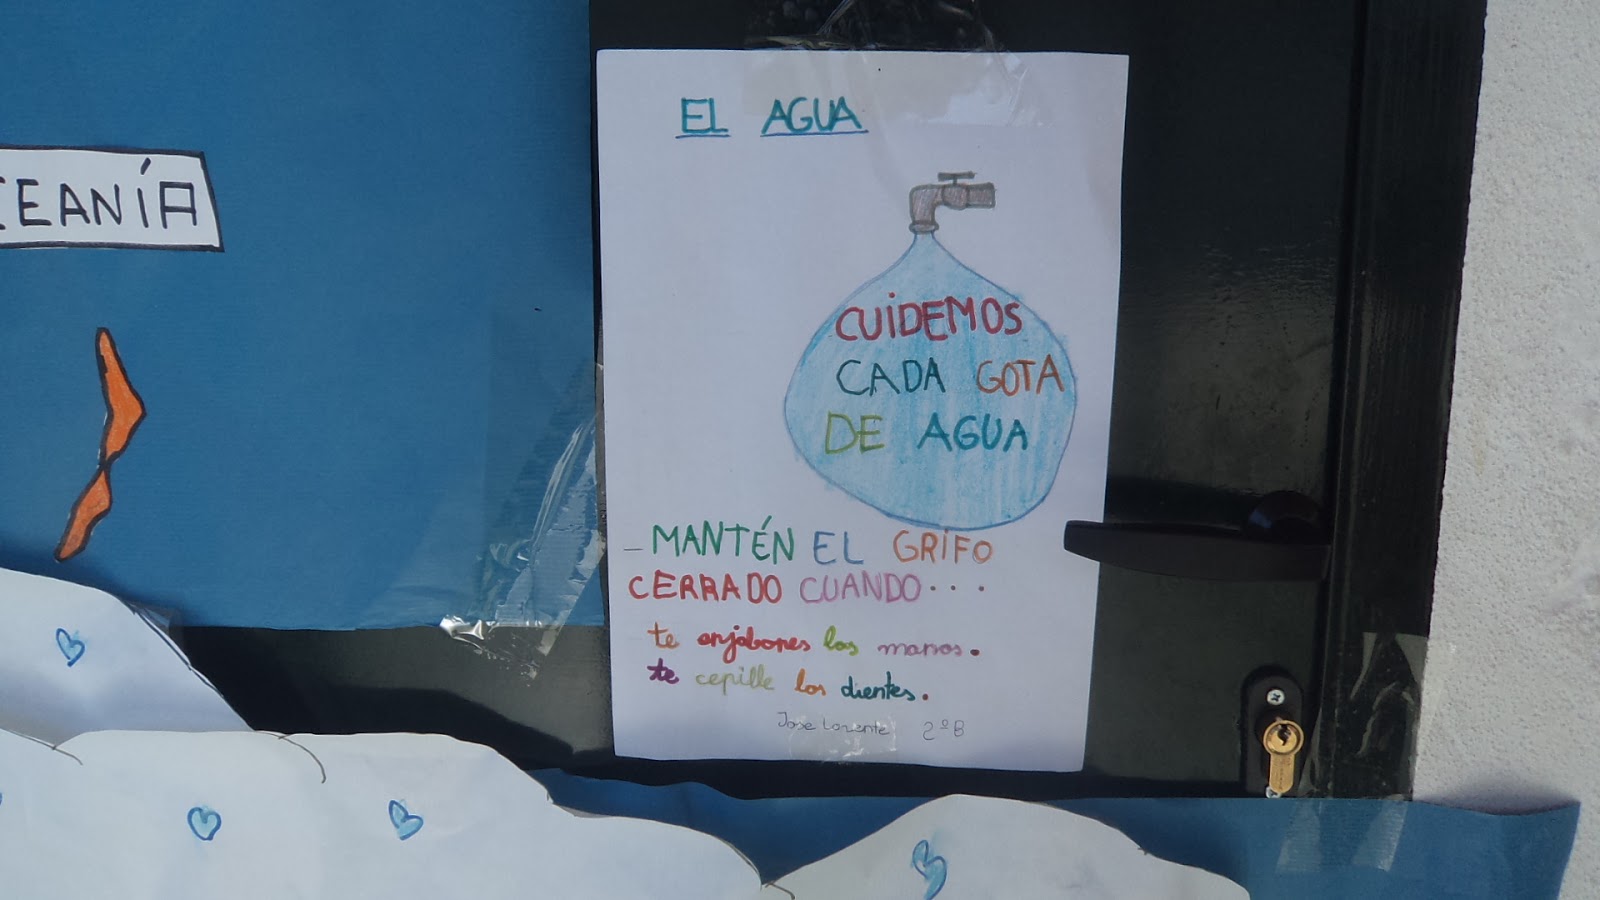 CEANÍA
EL AGUA
CUIDEMOS
CADA GOTA
DE AGUA
- MANTÉN EL GRIFO
CERRADO CUANDO...
te enjabones las manos.
te cepille los dientes.
Jose Lorente 2ºB